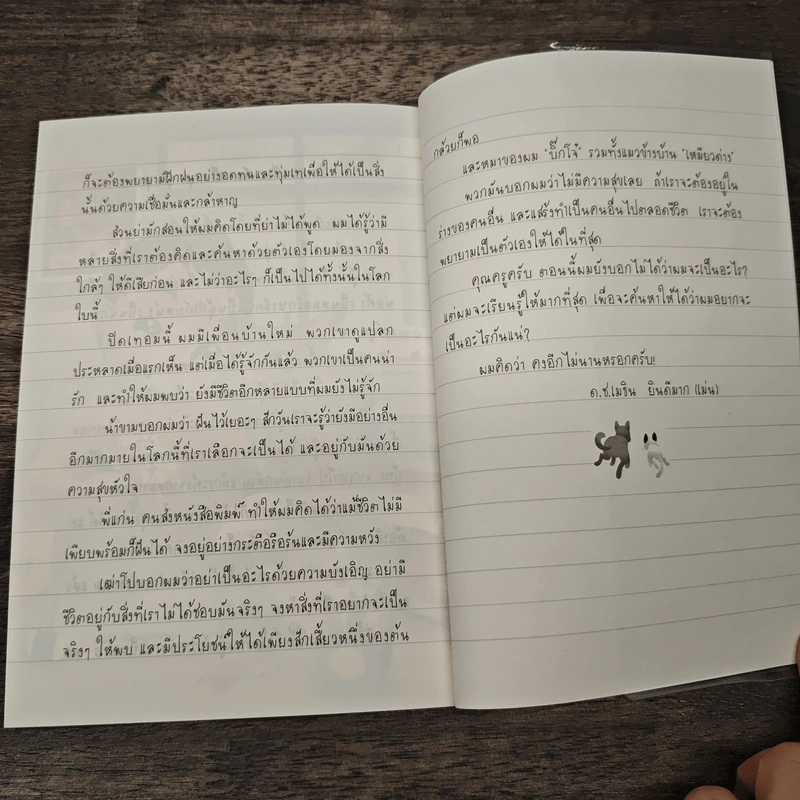 ก็จะต้องพยายามฝึกฝนอย่างอดทนและทุ่มเทเพื่อให้ได้เป็นสิ่ง
นั้นด้วยความเชื่อมั่นและกล้าหาญ
ส่วนย่ามักสอนให้ผมคิดโดยที่ย่าไม่ได้พูด ผมได้รู้ว่ามี
หลายสิ่งที่เราต้องคิดและค้นหาด้วยตัวเองโดยมองจากสิ่ง
ใกล้ๆ ให้ดีเสียก่อน และไม่ว่าอะไรๆ ก็เป็นไปได้ทั้งนั้นในโลก
ใบนี้
ปิดเทอมนี้ ผมมีเพื่อนบ้านใหม่ พวกเขาดูแปลก
ประหลาดเมื่อแรกเห็น แต่เมื่อได้รู้จักกันแล้ว พวกเขาเป็นคนน่า
รัก และทำให้ผมพบว่า ยังมีชีวิตอีกหลายแบบที่ผมยังไม่รู้จัก
น้าขามบอกผมว่า ฝันไว้เยอะๆ สักวันเราจะรู้ว่ายังมีอย่างอื่น
อีกมากมายในโลกนี้ที่เราเลือกจะเป็นได้ และอยู่กับมันด้วย
ความสุขหัวใจ
พี่แก่น คนส่งหนังสือพิมพ์ ทำให้ผมคิดได้ว่าแม้ชีวิตไม่มี
เพียบพร้อมก็ฝันได้ จงอยู่อย่างกระตือรือร้นและมีความหวัง
เฒ่าโปบอกผมว่าอย่าเป็นอะไรด้วยความบังเอิญ อย่ามี
ชีวิตอยู่กับสิ่งที่เราไม่ได้ชอบมันจริงๆ จงหาสิ่งที่เราอยากจะเป็น
จริงๆ ให้พบ และมีประโยชน์ให้ได้เพียงสักเสี้ยวหนึ่งของต้น
กล้วยก็พอ
และหมาของผม "บิ๊กโจ๋" รวมทั้งแมวข้างบ้าน "เหมียวด่าง"
พวกมันบอกผมว่าไม่มีความสุขเลย ถ้าเราจะต้องอยู่ใน
ร่างของคนอื่น และแสร้งทำเป็นคนอื่นไปตลอดชีวิต เราจะต้อง
พยายามเป็นตัวเองให้ได้ในที่สุด
คุณครูครับ ตอนนี้ผมยังบอกไม่ได้ว่าผมจะเป็นอะไร?
แต่ผมจะเรียนรู้ให้มากที่สุด เพื่อจะค้นหาให้ได้ว่าผมอยากจะ
เป็นอะไรกันแน่?
ผมคิดว่า คงอีกไม่นานหรอกครับ!
ด.ช.เมธิน ยินดีมาก (เม่น)